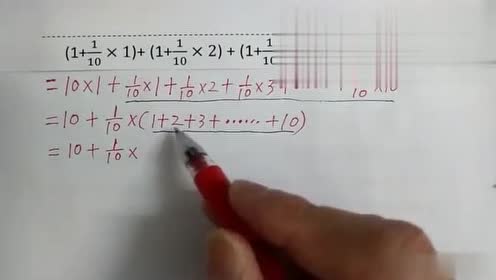 (1+1/10×1)+(1+1/10×2)+(1+1/10
=10×1+1/10×1+1/10×2+1/10×3+ 10×10
=10+1/10×(1+2+3+……+10)
=10+1/10×